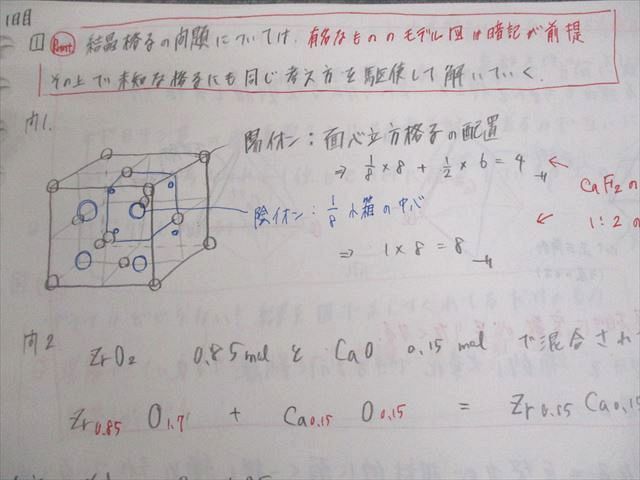 1日目
1 Point 結晶格子の問題については、有名なもののモデル図は暗記が前提
その上で未知な格子にも同じ考え方を駆使して解いていく.
問1.
陽イオン：面心立方格子の配置
⇒ 1/8 × 8 + 1/2 × 6 = 4
CaF2 の
陰イオン：1/8 小箱の中心
1：2 の
⇒ 1 × 8 = 8
問2
ZrO2 0.85mol と CaO 0.15 mol で混合され
Zr0.85 O1.7 + Ca0.15 O0.15 = Zr0.85 Ca0.15